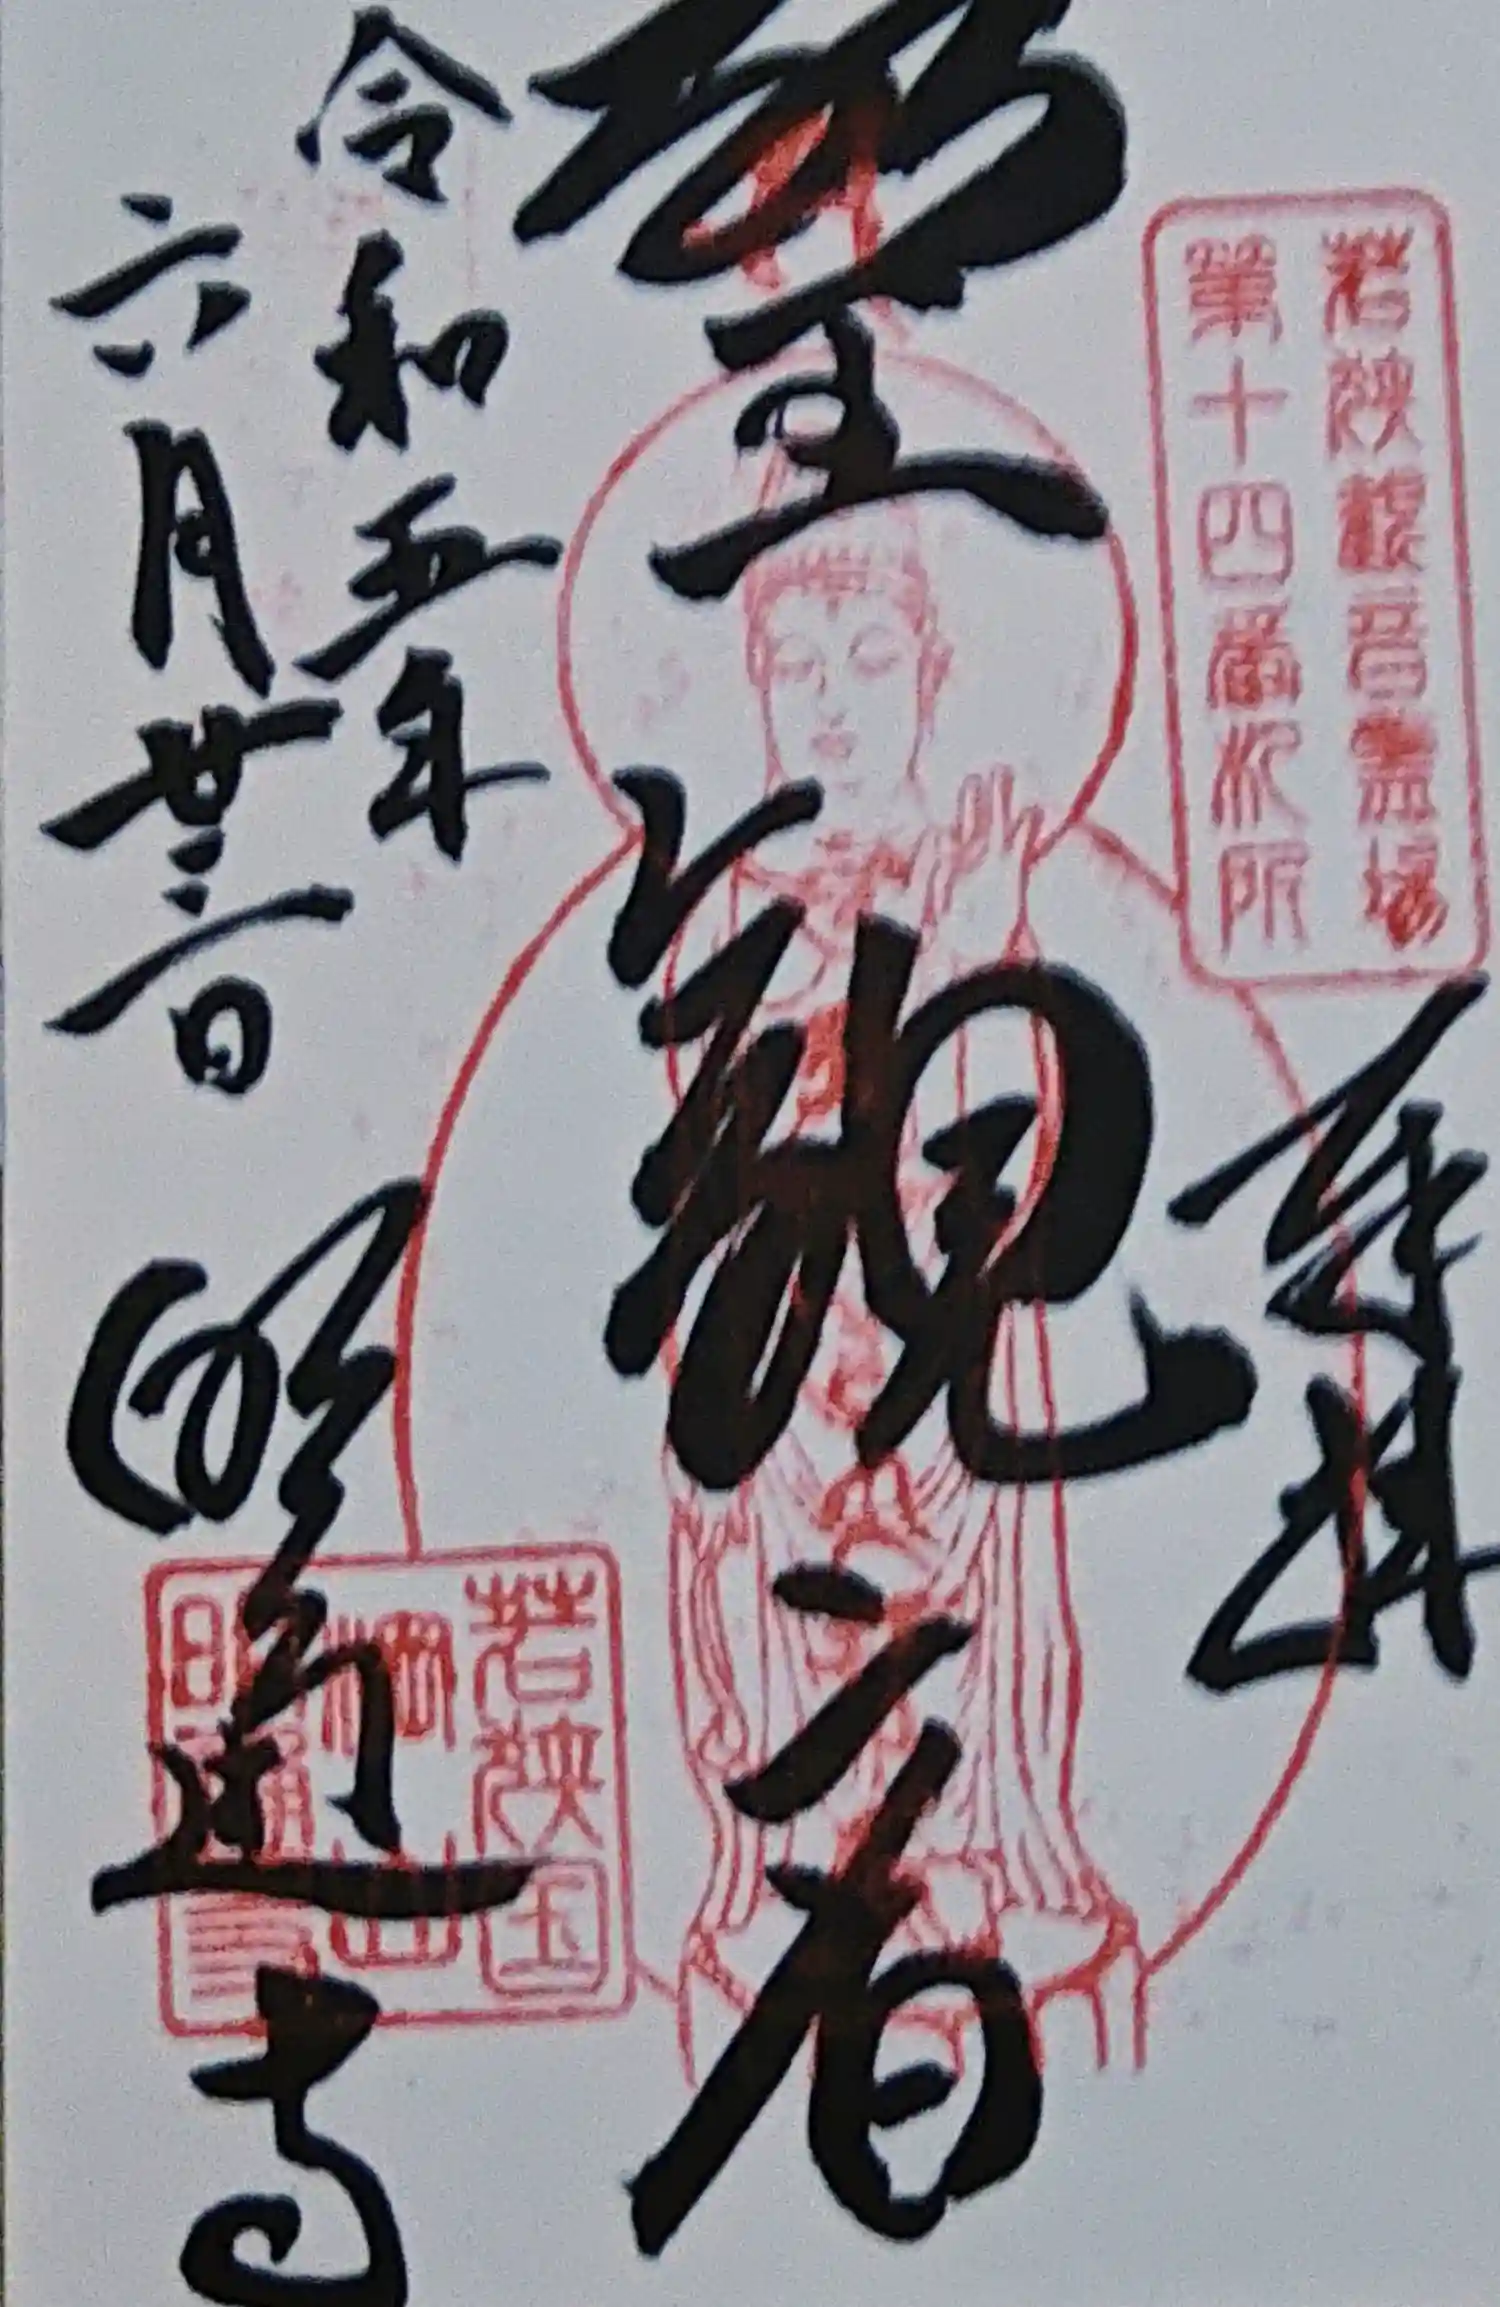 若狭観音霊場
第十四番札所
奉拝
聖観音
令和五年
六月廿三日
明通寺
若狭国
棡山
明通寺